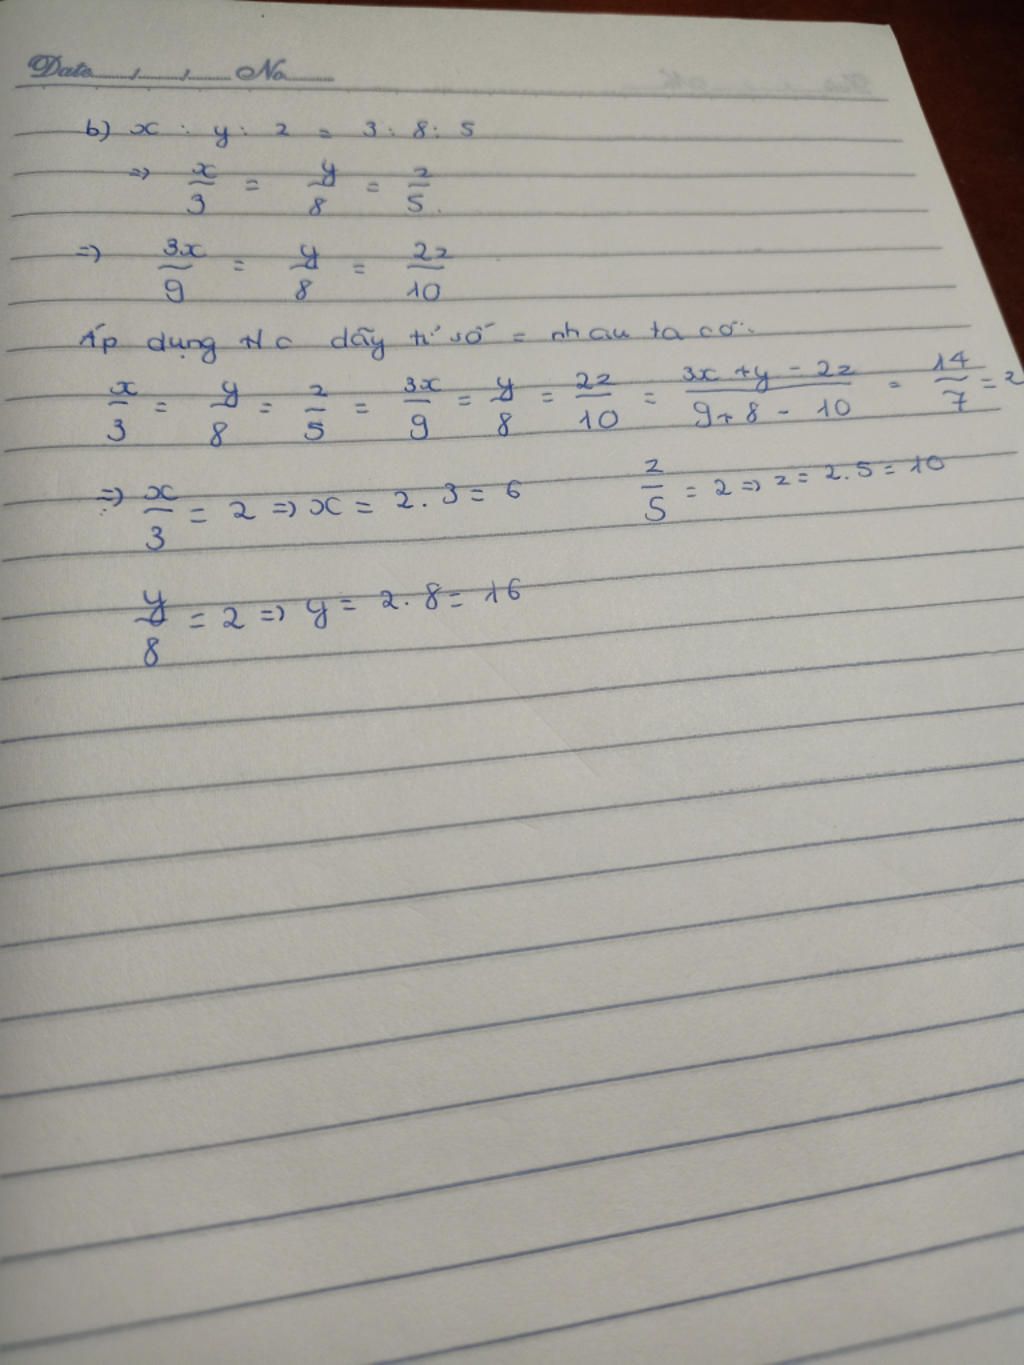 Date / / No
b) x : y : z = 3 : 8 : 5
=> x/3 = y/8 = z/5.
=> 3x/9 = y/8 = 2z/10
Áp dụng t/c dãy tỉ số = nhau ta có:
x/3 = y/8 = z/5 = 3x/9 = y/8 = 2z/10 = (3x + y - 2z)/(9 + 8 - 10) = 14/7 = 2
=> x/3 = 2 => x = 2.3 = 6 z/5 = 2 => z = 2.5 = 10
y/8 = 2 => y = 2.8 = 16